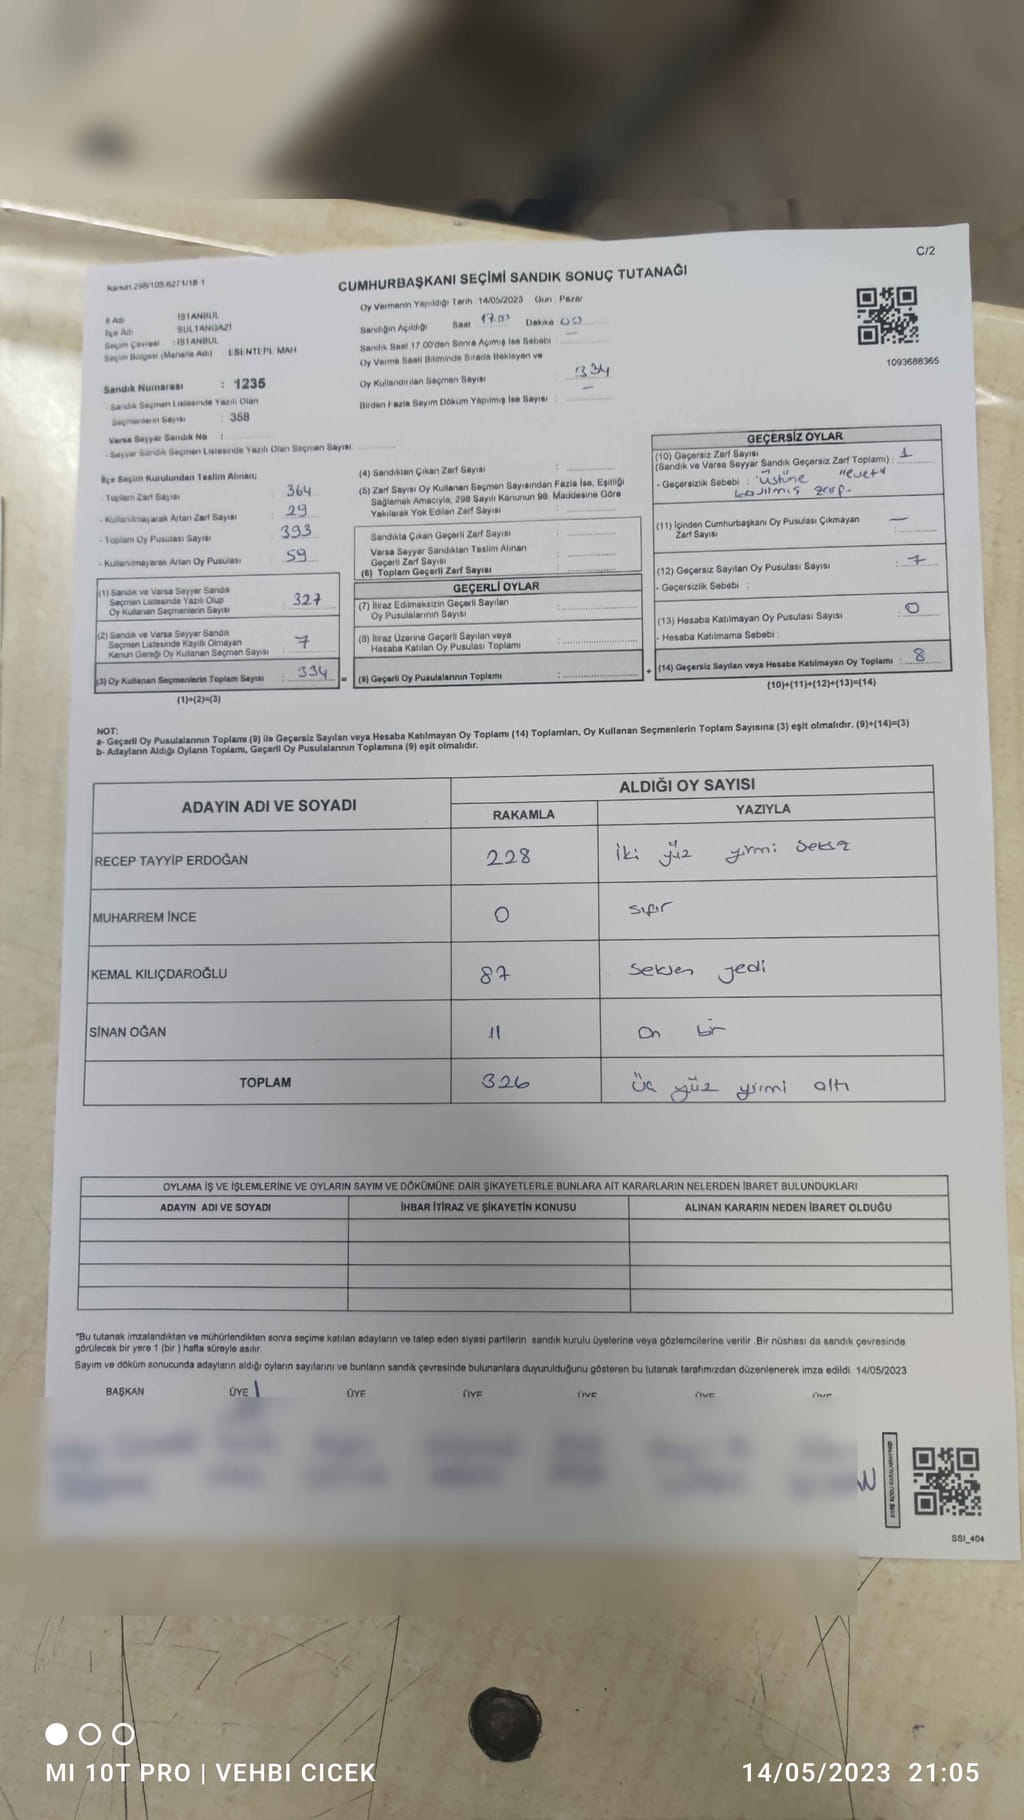 C/2
Kanun 298/105.6271/18 1
CUMHURBAŞKANI SEÇİMİ SANDIK SONUÇ TUTANAĞI
1093688365
İl Adı : İSTANBUL
İlçe Adı : SULTANGAZİ
Seçim Çevresi : İSTANBUL
Seçim Bölgesi (Mahalle Adı) ESENTEPE MAH
Sandık Numarası : 1235
- Sandık Seçmen Listesinde Yazılı Olan
Seçmenlerin Sayısı : 358
Varsa Seyyar Sandık No :
- Seyyar Sandık Seçmen Listesinde Yazılı Olan Seçmen Sayısı:
Oy Vermenin Yapıldığı Tarih : 14/05/2023 Gün : Pazar
Sandığın Açıldığı Saat 17.00 Dakika 00
Sandık Saat 17.00'den Sonra Açılmış İse Sebebi : —
Oy Verme Saati Bitiminde Sırada Bekleyen ve
Oy Kullandırılan Seçmen Sayısı : 334
Birden Fazla Sayım Döküm Yapılmış İse Sayısı : —
İlçe Seçim Kurulundan Teslim Alınan;
- Toplam Zarf Sayısı : 364
- Kullanılmayarak Artan Zarf Sayısı : 29
- Toplam Oy Pusulası Sayısı : 393
- Kullanılmayarak Artan Oy Pusulası : 59
(1) Sandık ve Varsa Seyyar Sandık
Seçmen Listesinde Yazılı Olup
Oy Kullanan Seçmenlerin Sayısı : 327
(2) Sandık ve Varsa Seyyar Sandık
Seçmen Listesinde Kayıtlı Olmayan
Kanun Gereği Oy Kullanan Seçmen Sayısı : 7
(3) Oy Kullanan Seçmenlerin Toplam Sayısı : 334
(1)+(2)=(3)
(4) Sandıktan Çıkan Zarf Sayısı :
(5) Zarf Sayısı Oy Kullanan Seçmen Sayısından Fazla İse, Eşitliği
Sağlamak Amacıyla, 298 Sayılı Kanunun 98. Maddesine Göre
Yakılarak Yok Edilen Zarf Sayısı :
Sandıkta Çıkan Geçerli Zarf Sayısı :
Varsa Seyyar Sandıktan Teslim Alınan
Geçerli Zarf Sayısı :
(6) Toplam Geçerli Zarf Sayısı :
GEÇERLİ OYLAR
(7) İtiraz Edilmeksizin Geçerli Sayılan
Oy Pusulalarının Sayısı :
(8) İtiraz Üzerine Geçerli Sayılan veya
Hesaba Katılan Oy Pusulası Toplamı :
= (9) Geçerli Oy Pusulalarının Toplamı : +
GEÇERSİZ OYLAR
(10) Geçersiz Zarf Sayısı
(Sandık ve Varsa Seyyar Sandık Geçersiz Zarf Toplamı) : 1
- Geçersizlik Sebebi : üstüne "evet"
zarf.
(11) İçinden Cumhurbaşkanı Oy Pusulası Çıkmayan
Zarf Sayısı : —
(12) Geçersiz Sayılan Oy Pusulası Sayısı : 7
- Geçersizlik Sebebi :
(13) Hesaba Katılmayan Oy Pusulası Sayısı : 0
- Hesaba Katılmama Sebebi :
(14) Geçersiz Sayılan veya Hesaba Katılmayan Oy Toplamı : 8
(10)+(11)+(12)+(13)=(14)
NOT:
a- Geçerli Oy Pusulalarının Toplamı (9) ile Geçersiz Sayılan veya Hesaba Katılmayan Oy Toplamı (14) Toplamları, Oy Kullanan Seçmenlerin Toplam Sayısına (3) eşit olmalıdır. (9)+(14)=(3)
b- Adayların Aldığı Oyların Toplamı, Geçerli Oy Pusulalarının Toplamına (9) eşit olmalıdır.
ADAYIN ADI VE SOYADI ALDIĞI OY SAYISI
RAKAMLA YAZIYLA
RECEP TAYYİP ERDOĞAN 228 İki yüz yirmi sekiz
MUHARREM İNCE 0 sıfır
KEMAL KILIÇDAROĞLU 87 Seksen yedi
SİNAN OĞAN 11 On bir
TOPLAM 326 Üç yüz yirmi altı
OYLAMA İŞ VE İŞLEMLERİNE VE OYLARIN SAYIM VE DÖKÜMÜNE DAİR ŞİKAYETLERLE BUNLARA AİT KARARLARIN NELERDEN İBARET BULUNDUKLARI
ADAYIN ADI VE SOYADI İHBAR İTİRAZ VE ŞİKAYETİN KONUSU ALINAN KARARIN NEDEN İBARET OLDUĞU
*Bu tutanak imzalandıktan ve mühürlendikten sonra seçime katılan adayların ve talep eden siyasi partilerin sandık kurulu üyelerine veya gözlemcilerine verilir .Bir nüshası da sandık çevresinde
görülecek bir yere 1 (bir ) hafta süreyle asılır.
Sayım ve döküm sonucunda adayların aldığı oyların sayılarını ve bunların sandık çevresinde bulunanlara duyurulduğunu gösteren bu tutanak tarafımızdan düzenlenerek imza edildi. 14/05/2023
BAŞKAN ÜYE ÜYE ÜYE ÜYE ÜYE ÜYE
SSI_404
MI 10T PRO | VEHBI CICEK
14/05/2023 21:05